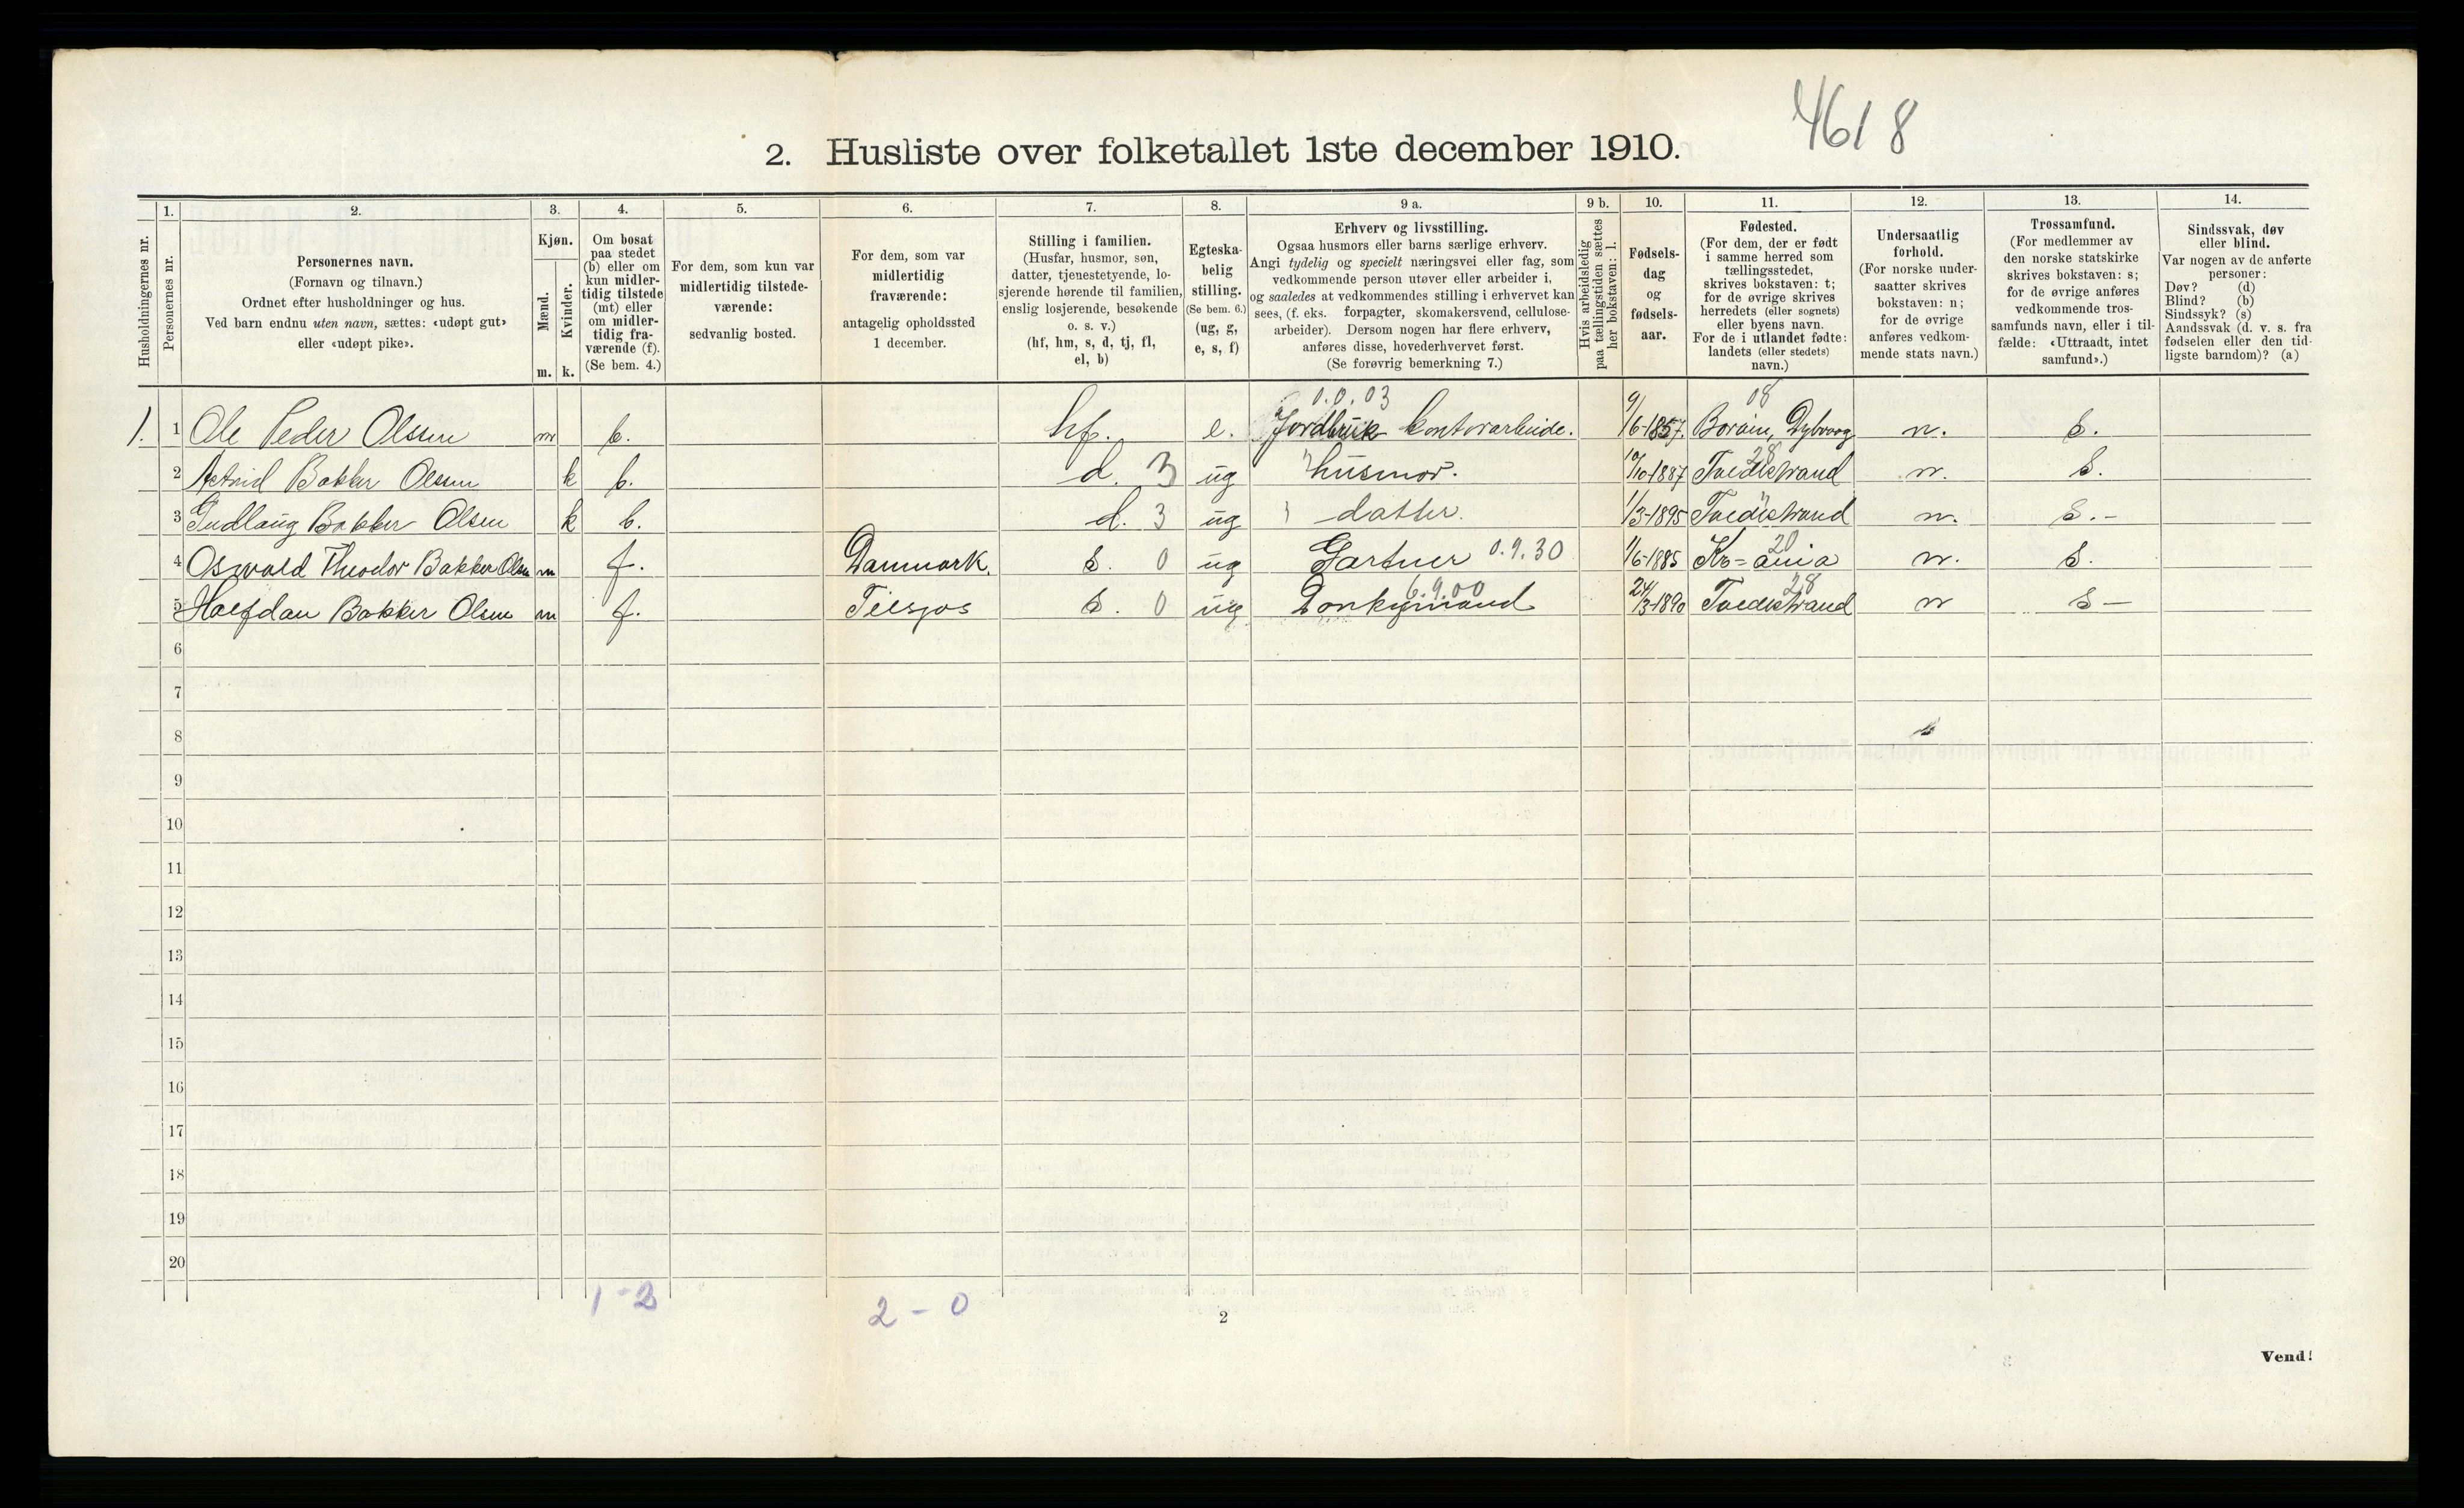 4618
2. Husliste over folketallet 1ste december 1910.
Husholdningernes nr.
1.
Personernes nr.
2.
Personernes navn.
(Fornavn og tilnavn.)
Ordnet efter husholdninger og hus.
Ved barn endnu uten navn, sættes: «udøpt gut»
eller «udøpt pike».
3.
Kjøn.
Mænd.
Kvinder.
m. k.
4.
Om bosat
paa stedet
(b) eller om
kun midler-
tidig tilstede
(mt) eller
om midler-
tidig fra-
værende (f).
(Se bem. 4.)
5.
For dem, som kun var
midlertidig tilstede-
værende:
sedvanlig bosted.
6.
For dem, som var
midlertidig
fraværende:
antagelig opholdssted
1 december.
7.
Stilling i familien.
(Husfar, husmor, søn,
datter, tjenestetyende, lo-
sjerende hørende til familien,
enslig losjerende, besøkende
o. s. v.)
(hf, hm, s, d, tj, fl,
el, b)
8.
Egteska-
belig
stilling.
(Se bem. 6.)
(ug, g,
e, s, f)
9 a.
Erhverv og livsstilling.
Ogsaa husmors eller barns særlige erhverv.
Angi tydelig og specielt næringsvei eller fag, som
vedkommende person utøver eller arbeider i,
og saaledes at vedkommendes stilling i erhvervet kan
sees, (f. eks. forpagter, skomakersvend, cellulose-
arbeider). Dersom nogen har flere erhverv,
anføres disse, hovederhvervet først.
(Se forøvrig bemerkning 7.)
9 b.
Hvis arbeidsledig
paa tællingstiden sættes
her bokstaven: l.
10.
Fødsels-
dag
og
fødsels-
aar.
11.
Fødested.
(For dem, der er født
i samme herred som
tællingsstedet,
skrives bokstaven: t;
for de øvrige skrives
herredets (eller sognets)
eller byens navn.
For de i utlandet fødte:
landets (eller stedets)
navn.)
12.
Undersaatlig
forhold.
(For norske under-
saatter skrives
bokstaven: n;
for de øvrige
anføres vedkom-
mende stats navn.)
13.
Trossamfund.
(For medlemmer av
den norske statskirke
skrives bokstaven: s;
for de øvrige anføres
vedkommende tros-
samfunds navn, eller i til-
fælde: «Uttraadt, intet
samfund».)
14.
Sindssvak, døv
eller blind.
Var nogen av de anførte
personer:
Døv? (d)
Blind? (b)
Sindssyk? (s)
Aandssvak (d. v. s. fra
fødselen eller den tid-
ligste barndom)? (a)
0.0.03 08
1. 1 Ole Peder Olsen m b. hf. e. Jordbruk kontorarbeide. 9/6-1857. Borøin, Dybvaag n. s.
28
2 Astrid Bakker Olsen k b. d. 3 ug husmor. 10/10-1887 Tvedestrand n. s.
3 Gudlaug Bakker Olsen k b. d. 3 ug datter. 1/3-1895 Tvedestrand n. s.-
20
4 Oswald Theodor Bakker Olsen m f. Danmark. s. 0 ug Gartner 0.9.30 1/6-1885 Kr=ania n. s.
6.9.00 28
5 Halfdan Bakker Olsen m f. Tilsjøs s. 0 ug Donkeymand 24/3-1890 Tvedestrand n s-
6
7
8
9
10
11
12
13
14
15
16
17
18
19
20
1-2
2-0
2
Vend!